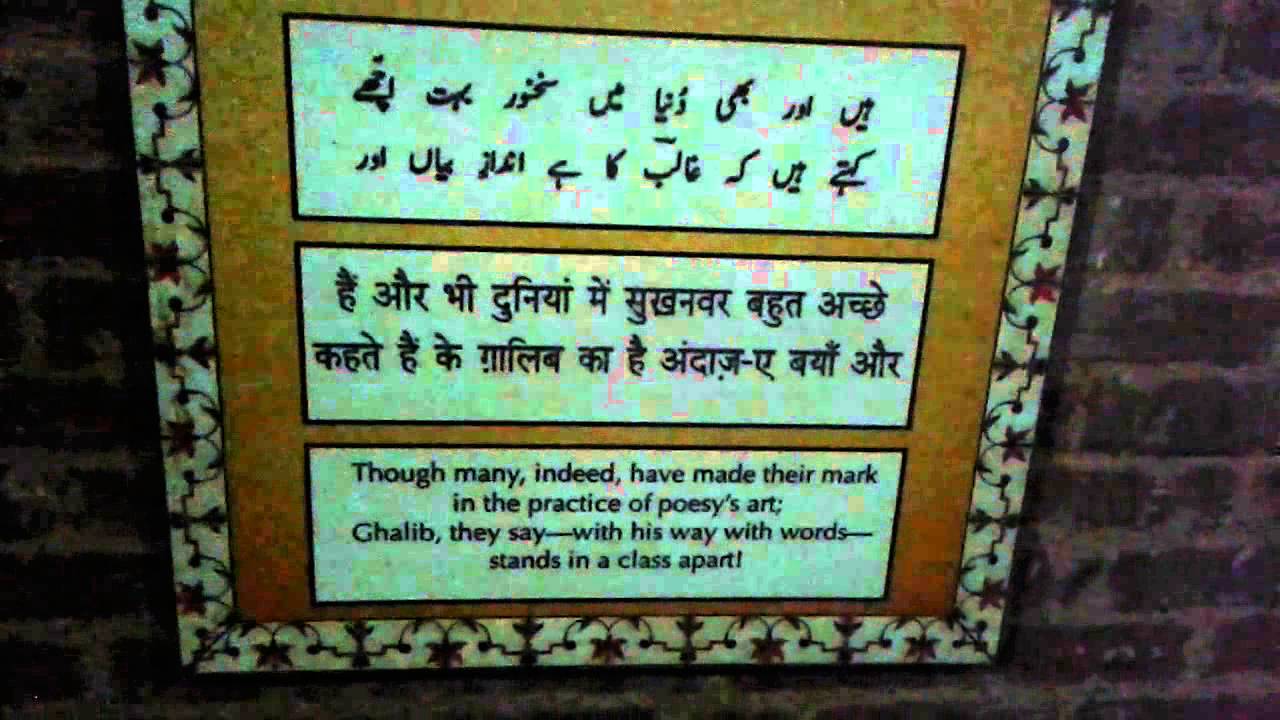 ہیں اور بھی دُنیا میں سخنور بہت اچھے
کہتے ہیں کہ غالبؔ کا ہے اندازِ بیاں اور
हैं और भी दुनियां में सुख़नवर बहुत अच्छे
कहते हैं के ग़ालिब का है अंदाज़-ए बयाँ और
Though many, indeed, have made their mark
in the practice of poesy's art;
Ghalib, they say—with his way with words—
stands in a class apart!